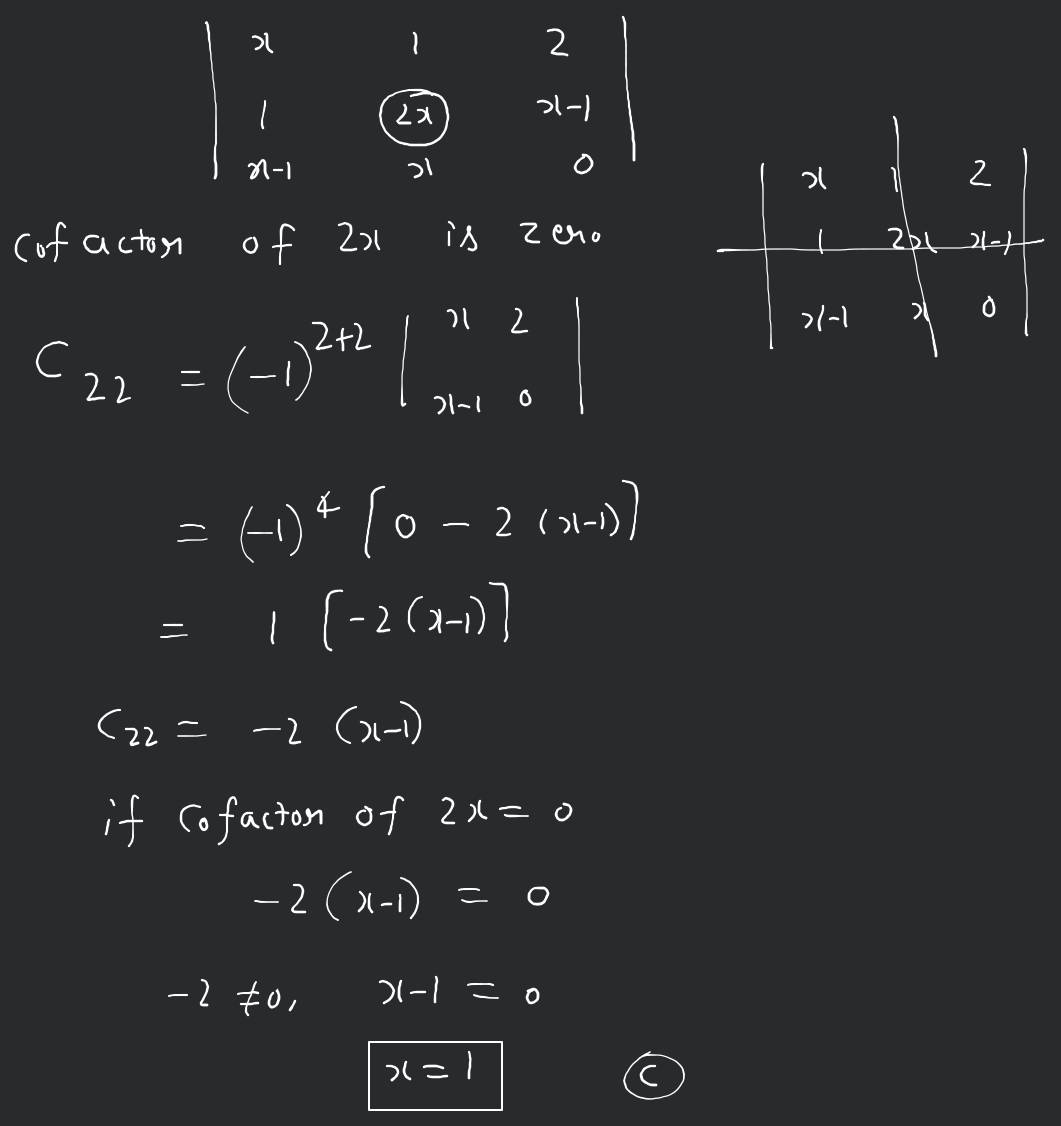 | x 1 2 |
| 1 2x x-1 |
| x-1 x 0 |
| x 1 2 |
| 1 2x x-1 |
| x-1 x 0 |
Cofactor of 2x is zero
C₂₂ = (-1)²⁺² | x 2 |
| x-1 0 |
= (-1)⁴ [0 - 2 (x-1)]
= 1 [-2(x-1)]
C₂₂ = -2 (x-1)
if Cofactor of 2x = 0
-2(x-1) = 0
-2 ≠0, x-1 = 0
x = 1 C